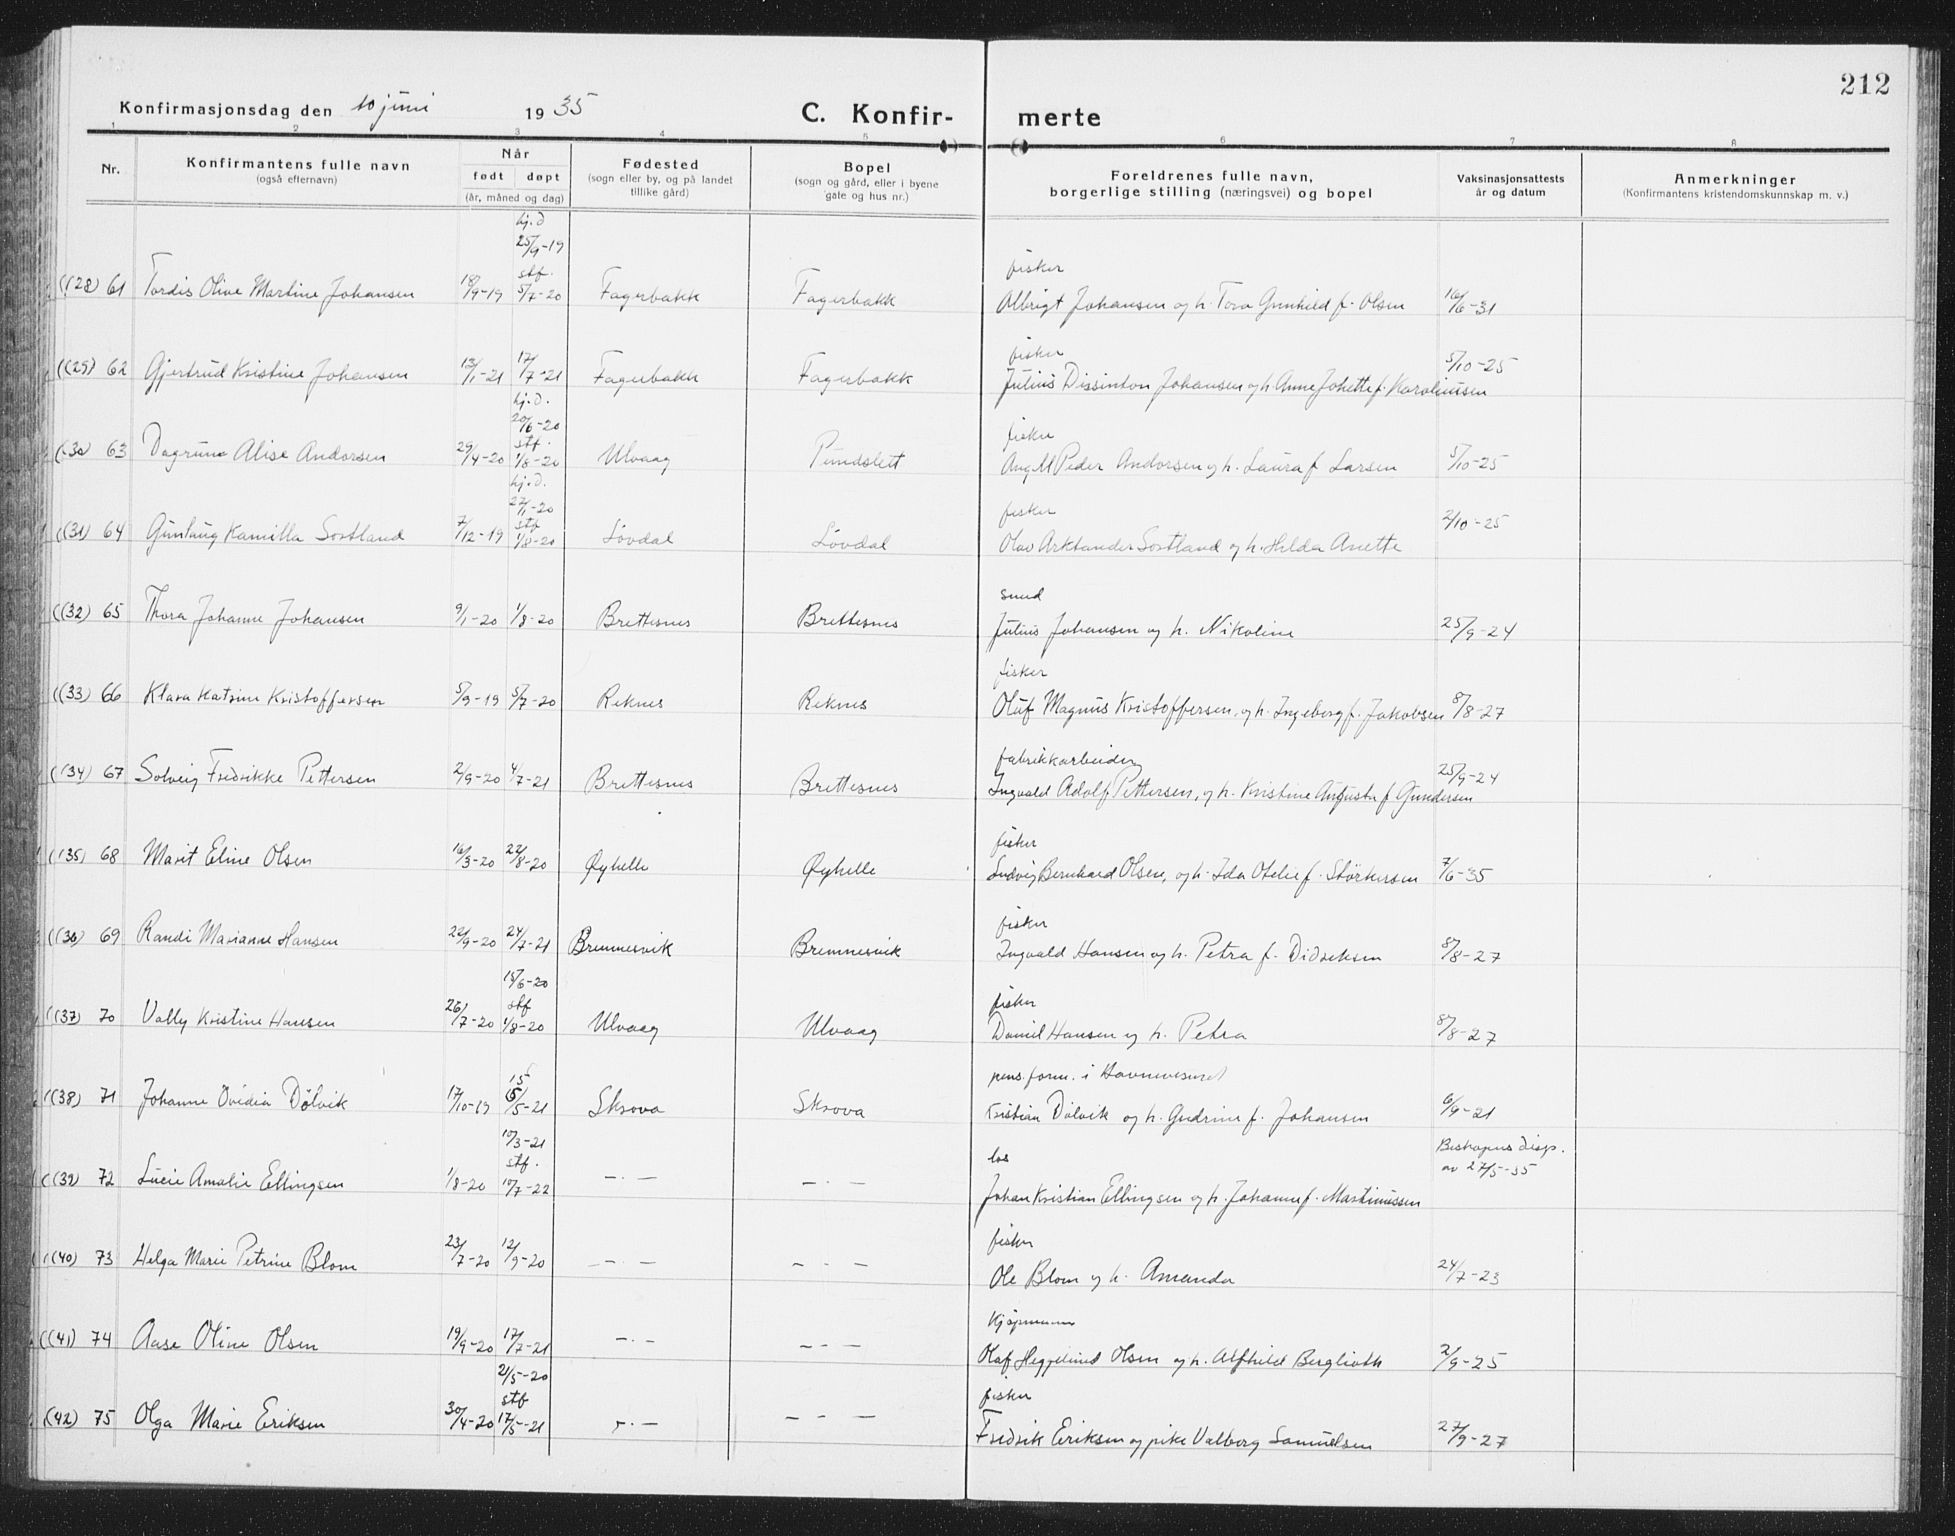 212
Konfirmasjonsdag den 10 juni 1935 C. Konfirmerte
1 2 3 4 5 6 7 8
Nr. Konfirmantens fulle navn (også efternavn) Når født døpt (år, måned og dag) Fødested (sogn eller by, og på landet tillike gård) Bopel (sogn og gård, eller i byene gate og hus nr.) Foreldrenes fulle navn, borgerlige stilling (næringsvei) og bopel Vaksinasjonsattests år og datum Anmerkninger (Konfirmantens kristendomskunnskap m. v.)
hj.d 25/9-19 stf. fisker
(28) 61 Tordis Olive Martine Johansen 18/9-19 5/7-20 Fagerbakk Fagerbakk Albrigt Johansen og h. Tora Gunhild f. Olsen 16/6-31
fisker
(29) 62 Gjertrud Kristine Johansen 13/1-21 17/7-21 Fagerbakk Fagerbakk Julius Dissinton Johansen og h. Anne Johette f. Karoliussen 5/10-25
hj.d. 20/6-20 stf. fisker
(30) 63 Dagrun Alise Andorsen 29/4-20 1/8-20 Ulvaag Pundslett Peder Andorsen og h. Laura f. Larsen 5/10-25
hj.d. 27/1-20 stf fisker
(31) 64 Gunlaug Kamilla Sortland 7/12-19 1/8-20 Lövdal Lövdal Olav Arktander Sortland og h. Hilda Anette 2/10-25
smed
(32) 65 Thora Johanne Johansen 9/1-20 1/8-20 Brettesnes Brettesnes Julius Johansen og h. Nikoline 25/9-24
fisker
(33) 66 Klara Katrine Kristoffersen 5/9-19 5/7-20 Reknes Reknes Oluf Magnus Kristoffersen, og h. Ingeborg f. Jakobsen 8/8-27
fabrikkarbeider
(34) 67 Solveig Fredrikke Pettersen 2/9-20 4/7-21 Brettesnes Brettesnes Ingvald Adolf Pettersen, og h. Kristine Augusta f Gundersen 25/9-24
fisker
(35) 68 Marit Eline Olsen 16/3-20 22/8-20 Øyhelle Øyhelle Ludvig Bernhard Olsen, og h. Ida Otelie f. Störkersen 7/6-35
fisker
(36) 69 Randi Marianne Hansen 22/9-20 24/7-21 Bremnesvik Bremnesvik Ingvald Hansen og h. Petra f. Didreksen 8/8-27
15/6-20 stf fisker
(37) 70 Vally Kristine Hansen 26/7-20 1/8-20 Ulvaag Ulvaag Daniel Hansen og h. Petra 8/8-27
pens. form. i Havnevesenet
(38) 71 Johanne Ovidia Dölvik 17/10-19 15/5-21 Skrova Skrova Kristian Dölvik og h. Gudrine f. Johansen 6/9-21
10/3-21 stf. los Biskopens disp. av 27/5-35
(39) 72 Lucie Amalie Ellingsen 1/8-20 10/7-22 — · — — · — Johan Kristian Ellingsen og h. Johanne f. Martinussen
fisker
(40) 73 Helga Marie Petrine Blom 23/7-20 12/9-20 — · — — · — Ole Blom og h. Amanda 24/7-23
Kjöpmann
(41) 74 Aase Oline Olsen 19/9-20 17/7-21 — · — — · — Olaf Heggelund Olsen og h. Alfhild Berglioth 2/9-25
21/5-20 stf fisker
(42) 75 Olga Marie Eriksen 30/4-20 17/5-21 — · — — · — Fredrik Eriksen og pike Valborg Samuelsen 27/9-27